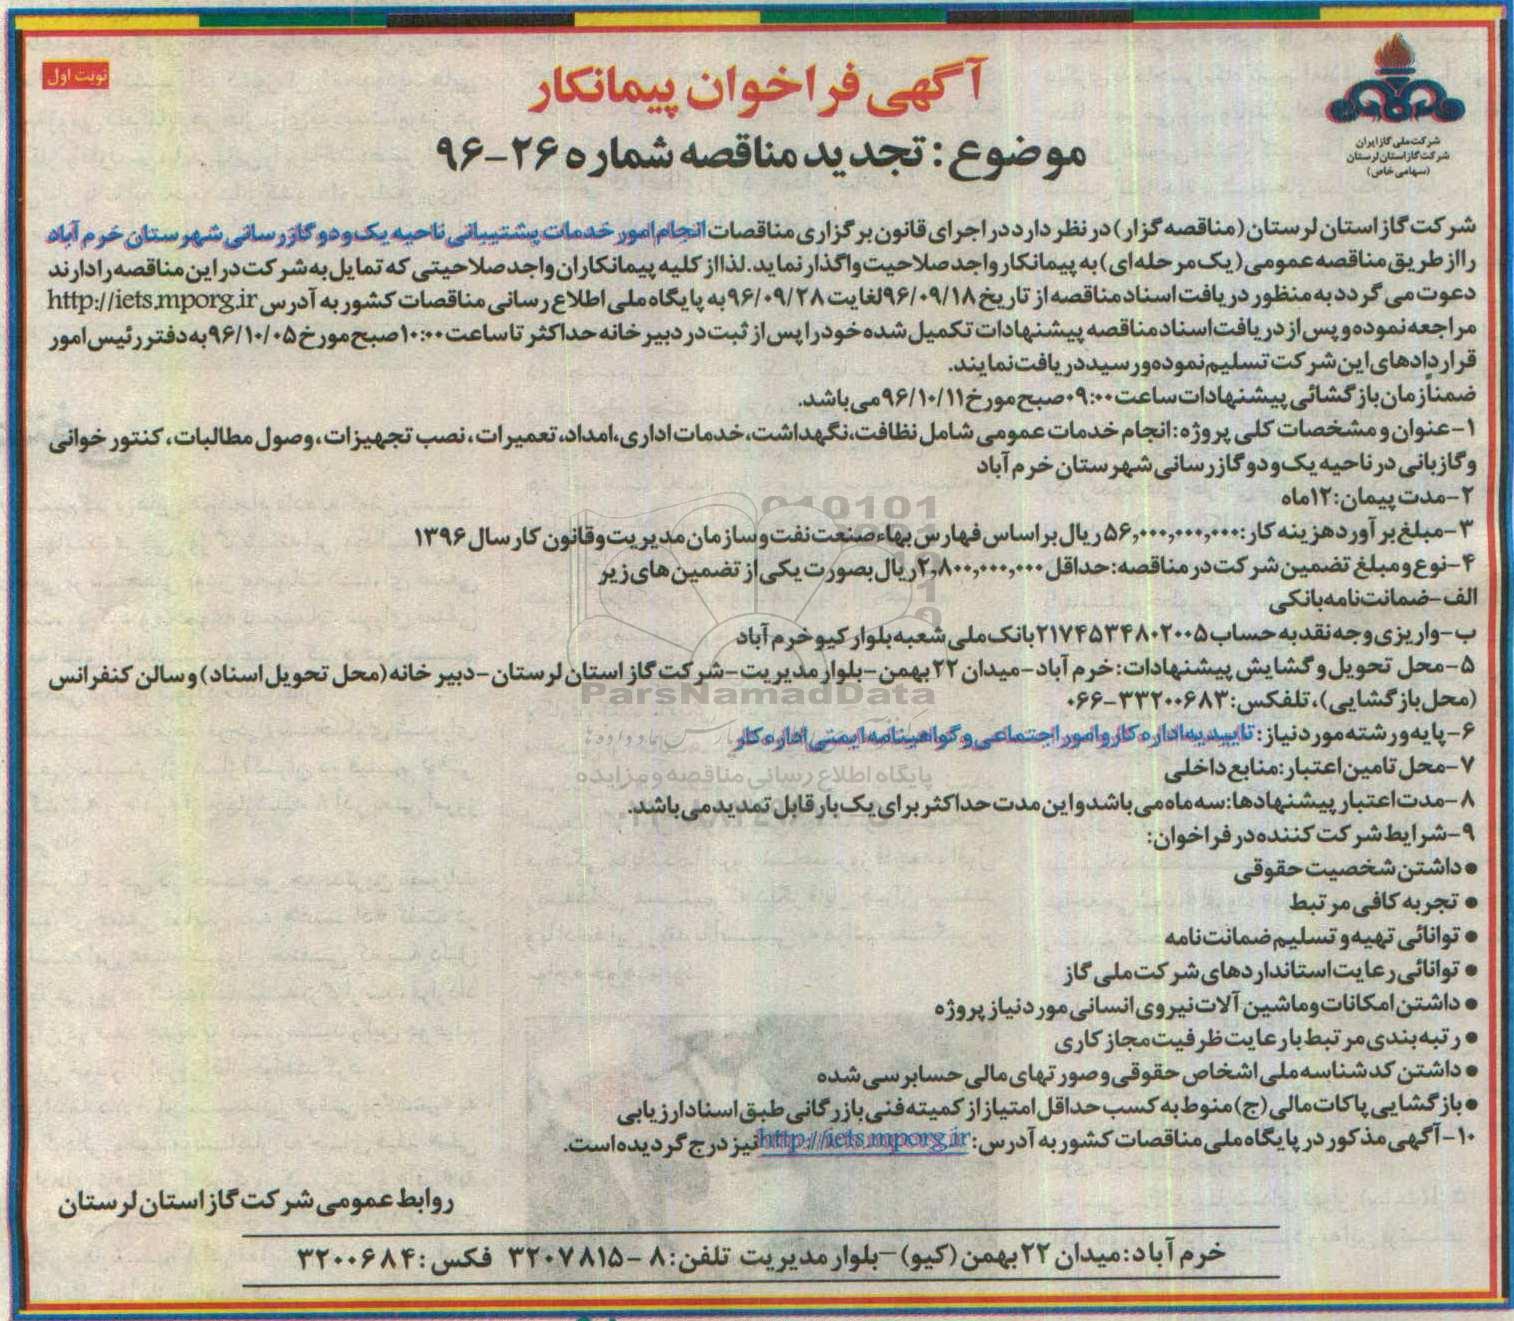 نوبت اول
آگهی فراخوان پیمانکار
شرکت ملی گاز ایران
شرکت گاز استان لرستان
(سهامی خاص)
موضوع : تجدید مناقصه شماره ۲۶-۹۶
شرکت گاز استان لرستان (مناقصه گزار) در نظر دارد در اجرای قانون برگزاری مناقصات انجام امور خدمات پشتیبانی ناحیه یک و دو گازرسانی شهرستان خرم آباد
را از طریق مناقصه عمومی (یک مرحله ای) به پیمانکار واجد صلاحیت واگذار نماید. لذا از کلیه پیمانکاران واجد صلاحیتی که تمایل به شرکت در این مناقصه را دارند
دعوت می گردد به منظور دریافت اسناد مناقصه از تاریخ ۹۶/۰۹/۱۸ لغایت ۹۶/۰۹/۲۸ به پایگاه ملی اطلاع رسانی مناقصات کشور به آدرس http://iets.mporg.ir
مراجعه نموده و پس از دریافت اسناد مناقصه پیشنهادات تکمیل شده خود را پس از ثبت در دبیرخانه حداکثر تا ساعت ۱۰:۰۰ صبح مورخ ۹۶/۱۰/۰۵ به دفتر رئیس امور
قراردادهای این شرکت تسلیم نموده و رسید دریافت نمایند.
ضمناً زمان بازگشائی پیشنهادات ساعت ۰۹:۰۰ صبح مورخ ۹۶/۱۰/۱۱ می باشد.
۱- عنوان و مشخصات کلی پروژه: انجام خدمات عمومی شامل نظافت، نگهداشت، خدمات اداری، امداد، تعمیرات، نصب تجهیزات، وصول مطالبات، کنتور خوانی
و گازبانی در ناحیه یک و دو گازرسانی شهرستان خرم آباد
۲- مدت پیمان: ۱۲ ماه
۳- مبلغ برآورد هزینه کار: ۵۶,۰۰۰,۰۰۰,۰۰۰ ریال بر اساس فهارس بهاء صنعت نفت و سازمان مدیریت و قانون کار سال ۱۳۹۶
۴- نوع و مبلغ تضمین شرکت در مناقصه: حداقل ۲,۸۰۰,۰۰۰,۰۰۰ ریال بصورت یکی از تضمین های زیر
الف- ضمانت نامه بانکی
ب- واریزی وجه نقد به حساب ۲۱۷۴۵۳۴۸۰۲۰۰۵ بانک ملی شعبه بلوار کیو خرم آباد
۵- محل تحویل و گشایش پیشنهادات: خرم آباد- میدان ۲۲ بهمن- بلوار مدیریت- شرکت گاز استان لرستان- دبیر خانه (محل تحویل اسناد) و سالن کنفرانس
(محل بازگشایی)، تلفکس: ۳۳۲۰۰۶۸۳-۰۶۶
۶- پایه و رشته مورد نیاز: تاییدیه اداره کار و امور اجتماعی و گواهینامه ایمنی اداره کار
۷- محل تامین اعتبار: منابع داخلی
۸- مدت اعتبار پیشنهادها: سه ماه می باشد و این مدت حداکثر برای یک بار قابل تمدید می باشد.
۹- شرایط شرکت کننده در فراخوان:
● داشتن شخصیت حقوقی
● تجربه کافی مرتبط
● توانائی تهیه و تسلیم ضمانت نامه
● توانائی رعایت استانداردهای شرکت ملی گاز
● داشتن امکانات و ماشین آلات نیروی انسانی مورد نیاز پروژه
● رتبه بندی مرتبط با رعایت ظرفیت مجاز کاری
● داشتن کد شناسه ملی اشخاص حقوقی و صورتهای مالی حسابرسی شده
● بازگشایی پاکات مالی (ج) منوط به کسب حداقل امتیاز از کمیته فنی بازرگانی طبق اسناد ارزیابی
۱۰- آگهی مذکور در پایگاه ملی مناقصات کشور به آدرس: http://iets.mporg.ir نیز درج گردیده است.
روابط عمومی شرکت گاز استان لرستان
خرم آباد: میدان ۲۲ بهمن (کیو) – بلوار مدیریت تلفن: ۸ - ۳۲۰۷۸۱۵ فکس : ۳۲۰۰۶۸۴
ParsNamadData
پایگاه اطلاع رسانی مناقصه و مزایده